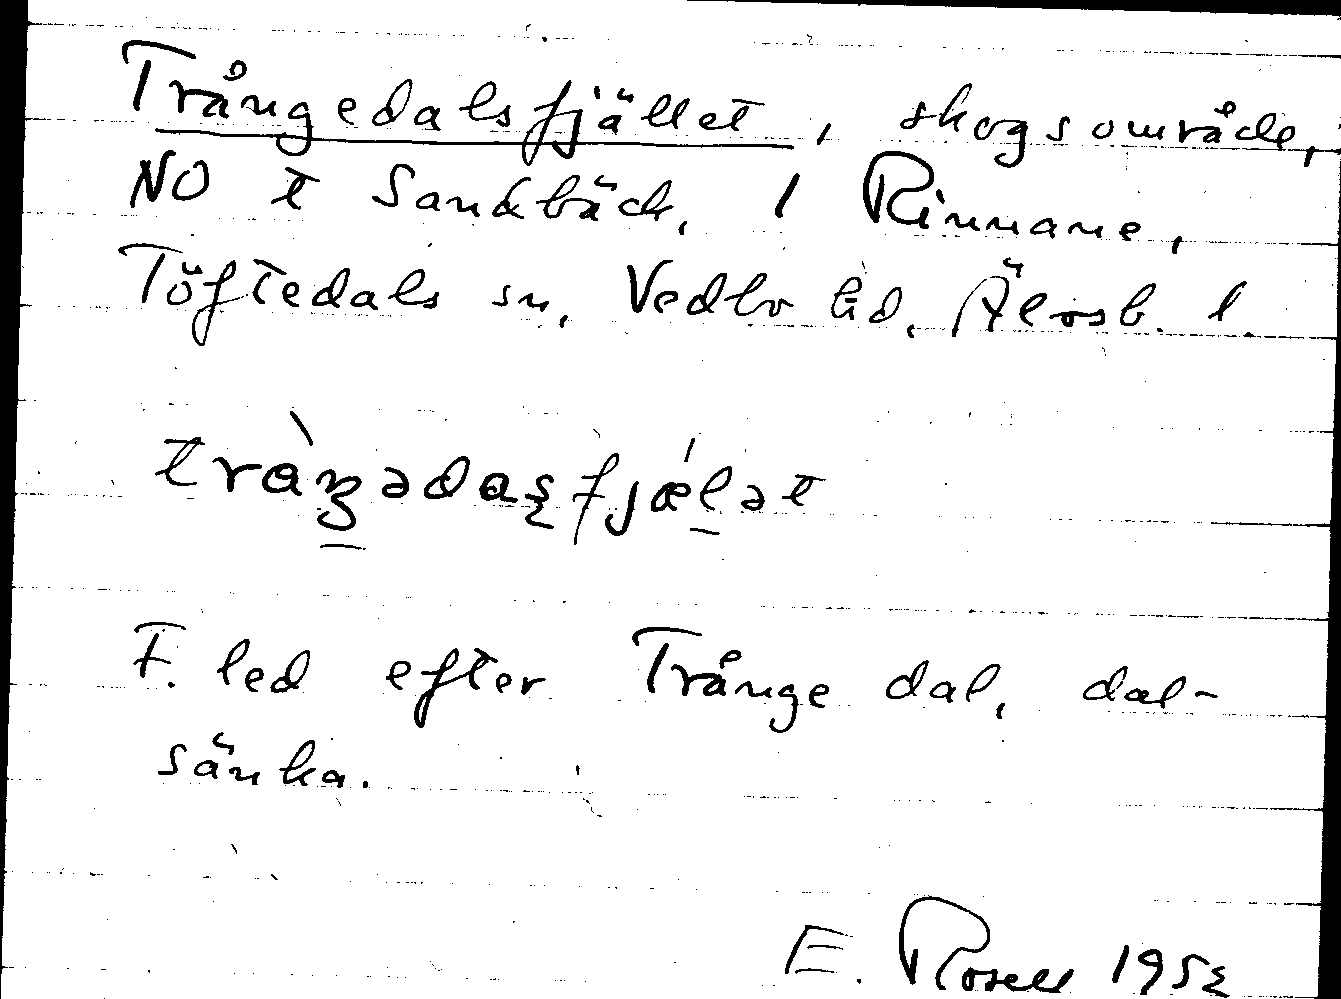 Trångedalsfjället, skogsområde,
NO t Sandbäck, 1 Rinnane,
Töftedals sn, Vedbo hd, Älvsb. l.
tràŋ̲ədaʂfjǽl̲ət
F. led efter Trånge dal, dal-
sänka.
E. Rosell 1952